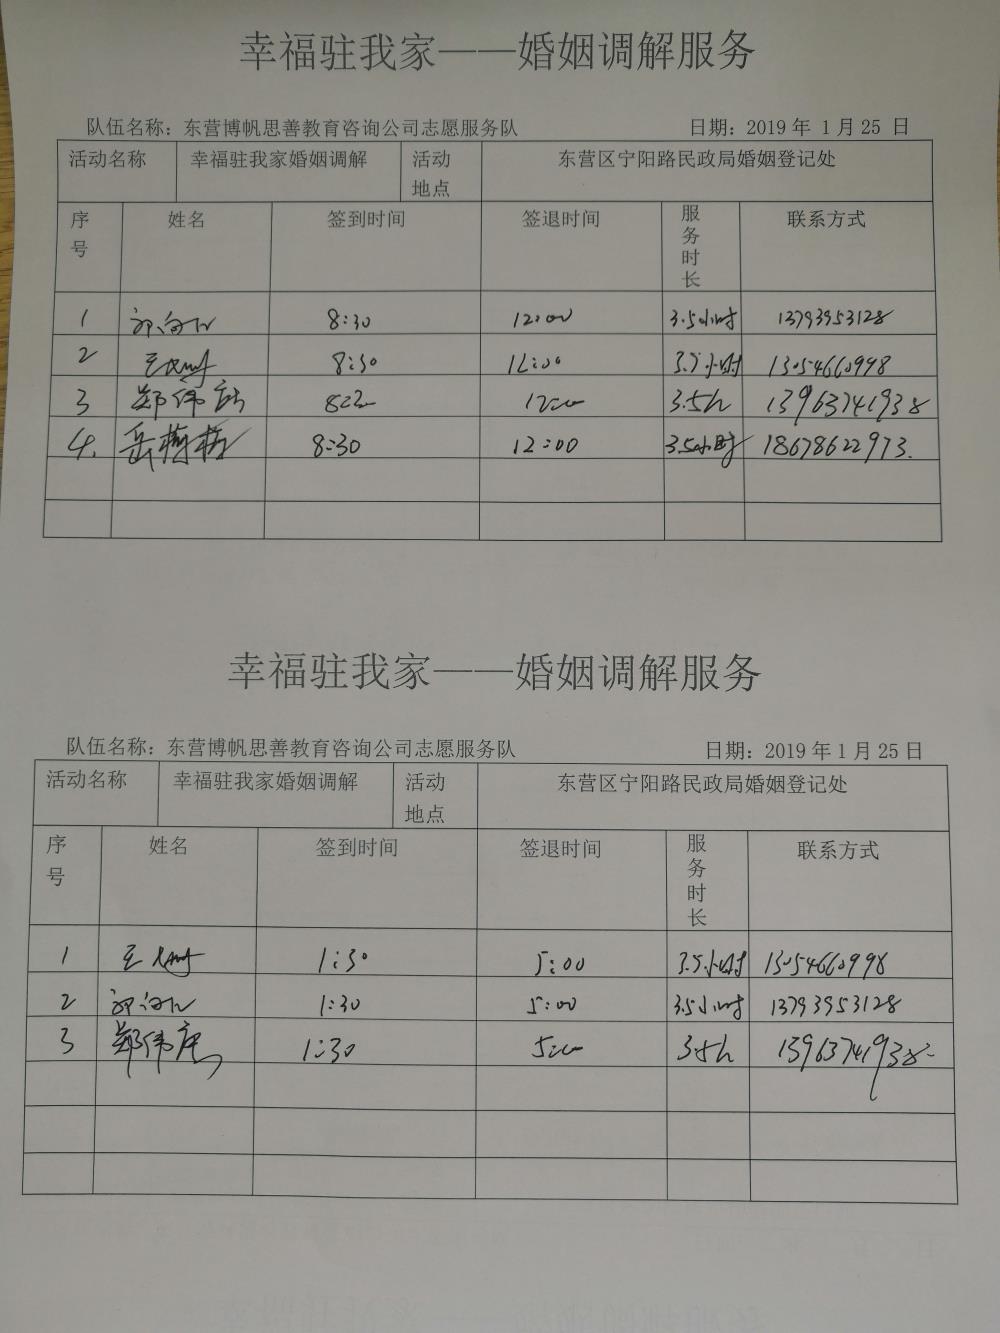 幸福驻我家——婚姻调解服务
队伍名称：东营博帆思善教育咨询公司志愿服务队 日期：2019 年 1 月 25 日
活动名称 幸福驻我家婚姻调解 活动地点 东营区宁阳路民政局婚姻登记处
序号 姓名 签到时间 签退时间 服务时长 联系方式
1 8:30 12:00 3.5小时 13793953128
2 8:30 12:00 3.5小时 13054660998
3 郑伟 12:00 3.5h 13963741938
4. 岳梅 8:30 12:00 3.5小时 18678622973.
幸福驻我家——婚姻调解服务
队伍名称：东营博帆思善教育咨询公司志愿服务队 日期：2019 年 1 月 25 日
活动名称 幸福驻我家婚姻调解 活动地点 东营区宁阳路民政局婚姻登记处
序号 姓名 签到时间 签退时间 服务时长 联系方式
1 王 1:30 5:00 3.5小时 13054660998
2 1:30 5:00 3.5小时 13793953128
3 郑伟 1:30 5:00 3.5h 13963741938